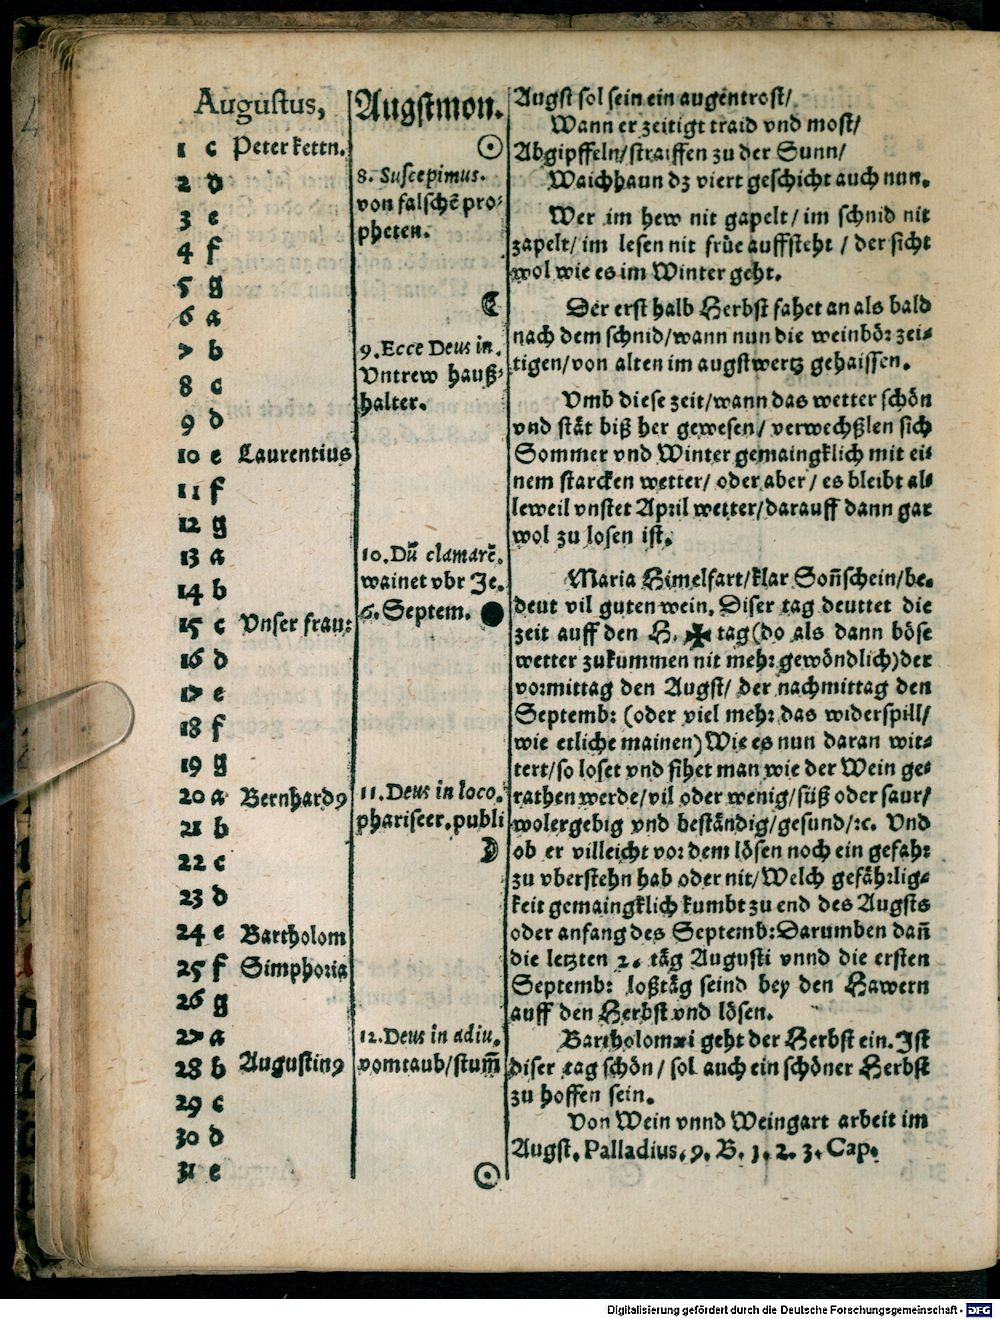 Augustus,
1 c Peter kettn.
2 d
3 e
4 f
5 g
6 a
7 b
8 c
9 d
10 e Laurentius
11 f
12 g
13 a
14 b
15 c Vnser frau:
16 d
17 e
18 f
19 g
20 a Bernhardꝰ
21 b
22 c
23 d
24 e Bartholom
25 f Simphoria
26 g
27 a
28 b Augustinꝰ
29 c
30 d
31 e
Augstmon.
8. Suscepimus.
von falschē pro⸗
pheten.
9. Ecce Deus in.
Vntrew hauß⸗
halter.
10. Dū clamarē.
wainet vbr Je.
6. Septem.
11. Deus in loco.
phariseer. publi
12. Deus in adiu.
vom taub/stum̄
Augst sol sein ein augentrost/
Wann er zeitigt traid vnd most/
Abgipffeln/straiffen zu der Sunn/
Waichhaun dz viert geschicht auch nun.
Wer im hew nit gapelt/ im schnid nit
zapelt/ im lesen nit früe auffsteht / der sicht
wol wie es im Winter geht.
Der erst halb Herbst fahet an als bald
nach dem schnid/wann nun die weinbör zei⸗
tigen/von alten im augstwertz gehaissen.
Vmb diese zeit/wann das wetter schön
vnd stät biß her gewesen/ verwechßlen sich
Sommer vnd Winter gemaingklich mit ei⸗
nem starcken wetter/ oder aber / es bleibt al⸗
leweil vnstet April wetter/darauff dann gar
wol zu losen ist.
Maria Himelfart/klar Soñschein/be⸗
deut vil guten wein. Diser tag deuttet die
zeit auff den H. ✠ tag(do als dann böse
wetter zukummen nit mehr gewöndlich)der
vormittag den Augst/ der nachmittag den
Septemb: (oder viel mehr das widerspill/
wie etliche mainen) Wie es nun daran wit⸗
tert/so loset vnd sihet man wie der Wein ge⸗
rathen werde/vil oder wenig/süß oder saur/
wolergebig vnd beständig/gesund/ꝛc. Vnd
ob er villeicht vor dem lösen noch ein gefahr
zu vberstehn hab oder nit/Welch gefährlig⸗
keit gemaingklich kumbt zu end des Augsts
oder anfang des Septemb: Darumben dañ
die letzten 2. täg Augusti vnnd die ersten
Septemb: loßtäg seind bey den Hawern
auff den Herbst vnd lösen.
Bartholomæi geht der Herbst ein. Ist
diser tag schön/ sol auch ein schöner Herbst
zu hoffen sein.
Von Wein vnnd Weingart arbeit im
Augst. Palladius. 9. B. 1. 2. 3. Cap.
Digitalisierung gefördert durch die Deutsche Forschungsgemeinschaft - DFG